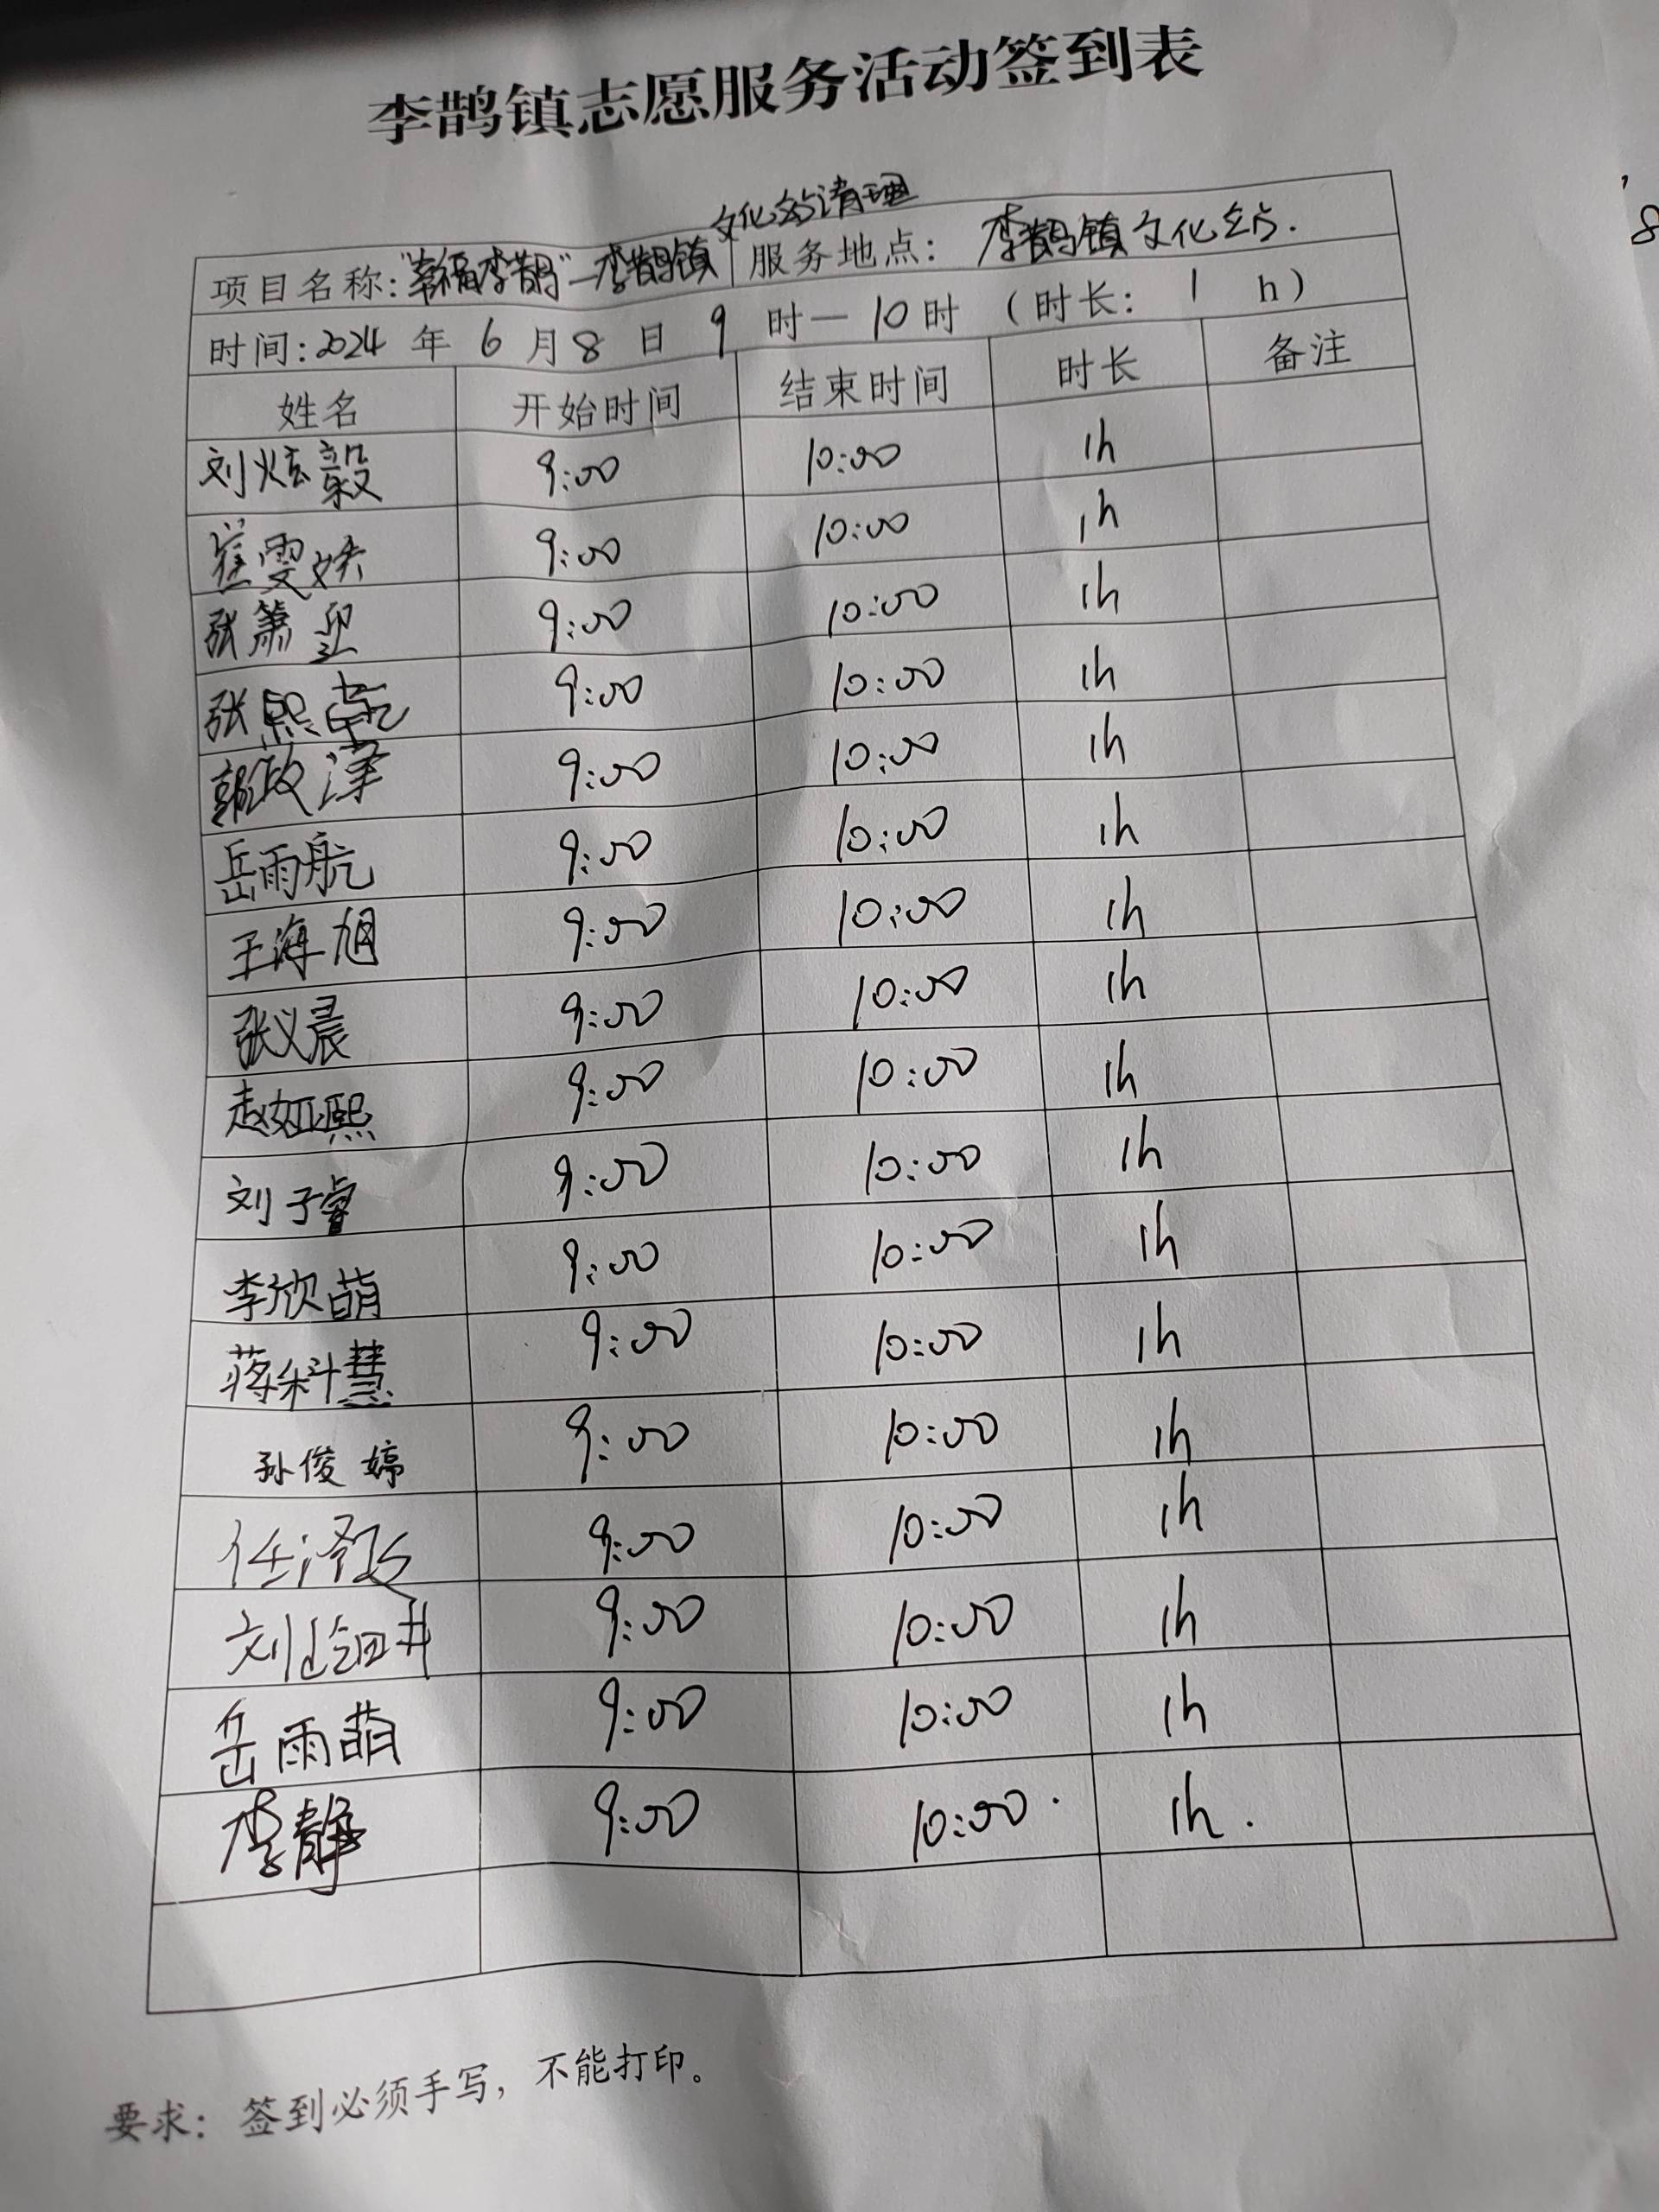 李鹊镇志愿服务活动签到表
文化站清理
项目名称:“幸福李鹊”—李鹊镇 服务地点: 李鹊镇文化站.
时间:2024 年 6 月 8 日 9 时—10时 (时长: 1 h)
姓名 开始时间 结束时间 时长 备注
刘炫毅 9:00 10:00 1h
崔雯 9:00 10:00 1h
张箫 9:00 10:00 1h
张熙 9:00 10:00 1h
郭政泽 9:00 10:00 1h
岳雨航 9:00 10:00 1h
王海旭 9:00 10:00 1h
张义晨 9:00 10:00 1h
赵娅熙 9:00 10:00 1h
刘子睿 9:00 10:00 1h
李欣萌 9:00 10:00 1h
蒋科慧 9:00 10:00 1h
孙俊婷 9:00 10:00 1h
任泽 9:00 10:00 1h
刘 9:00 10:00 1h
岳雨萌 9:00 10:00 1h
李静 9:00 10:00. 1h.
要求: 签到必须手写, 不能打印。